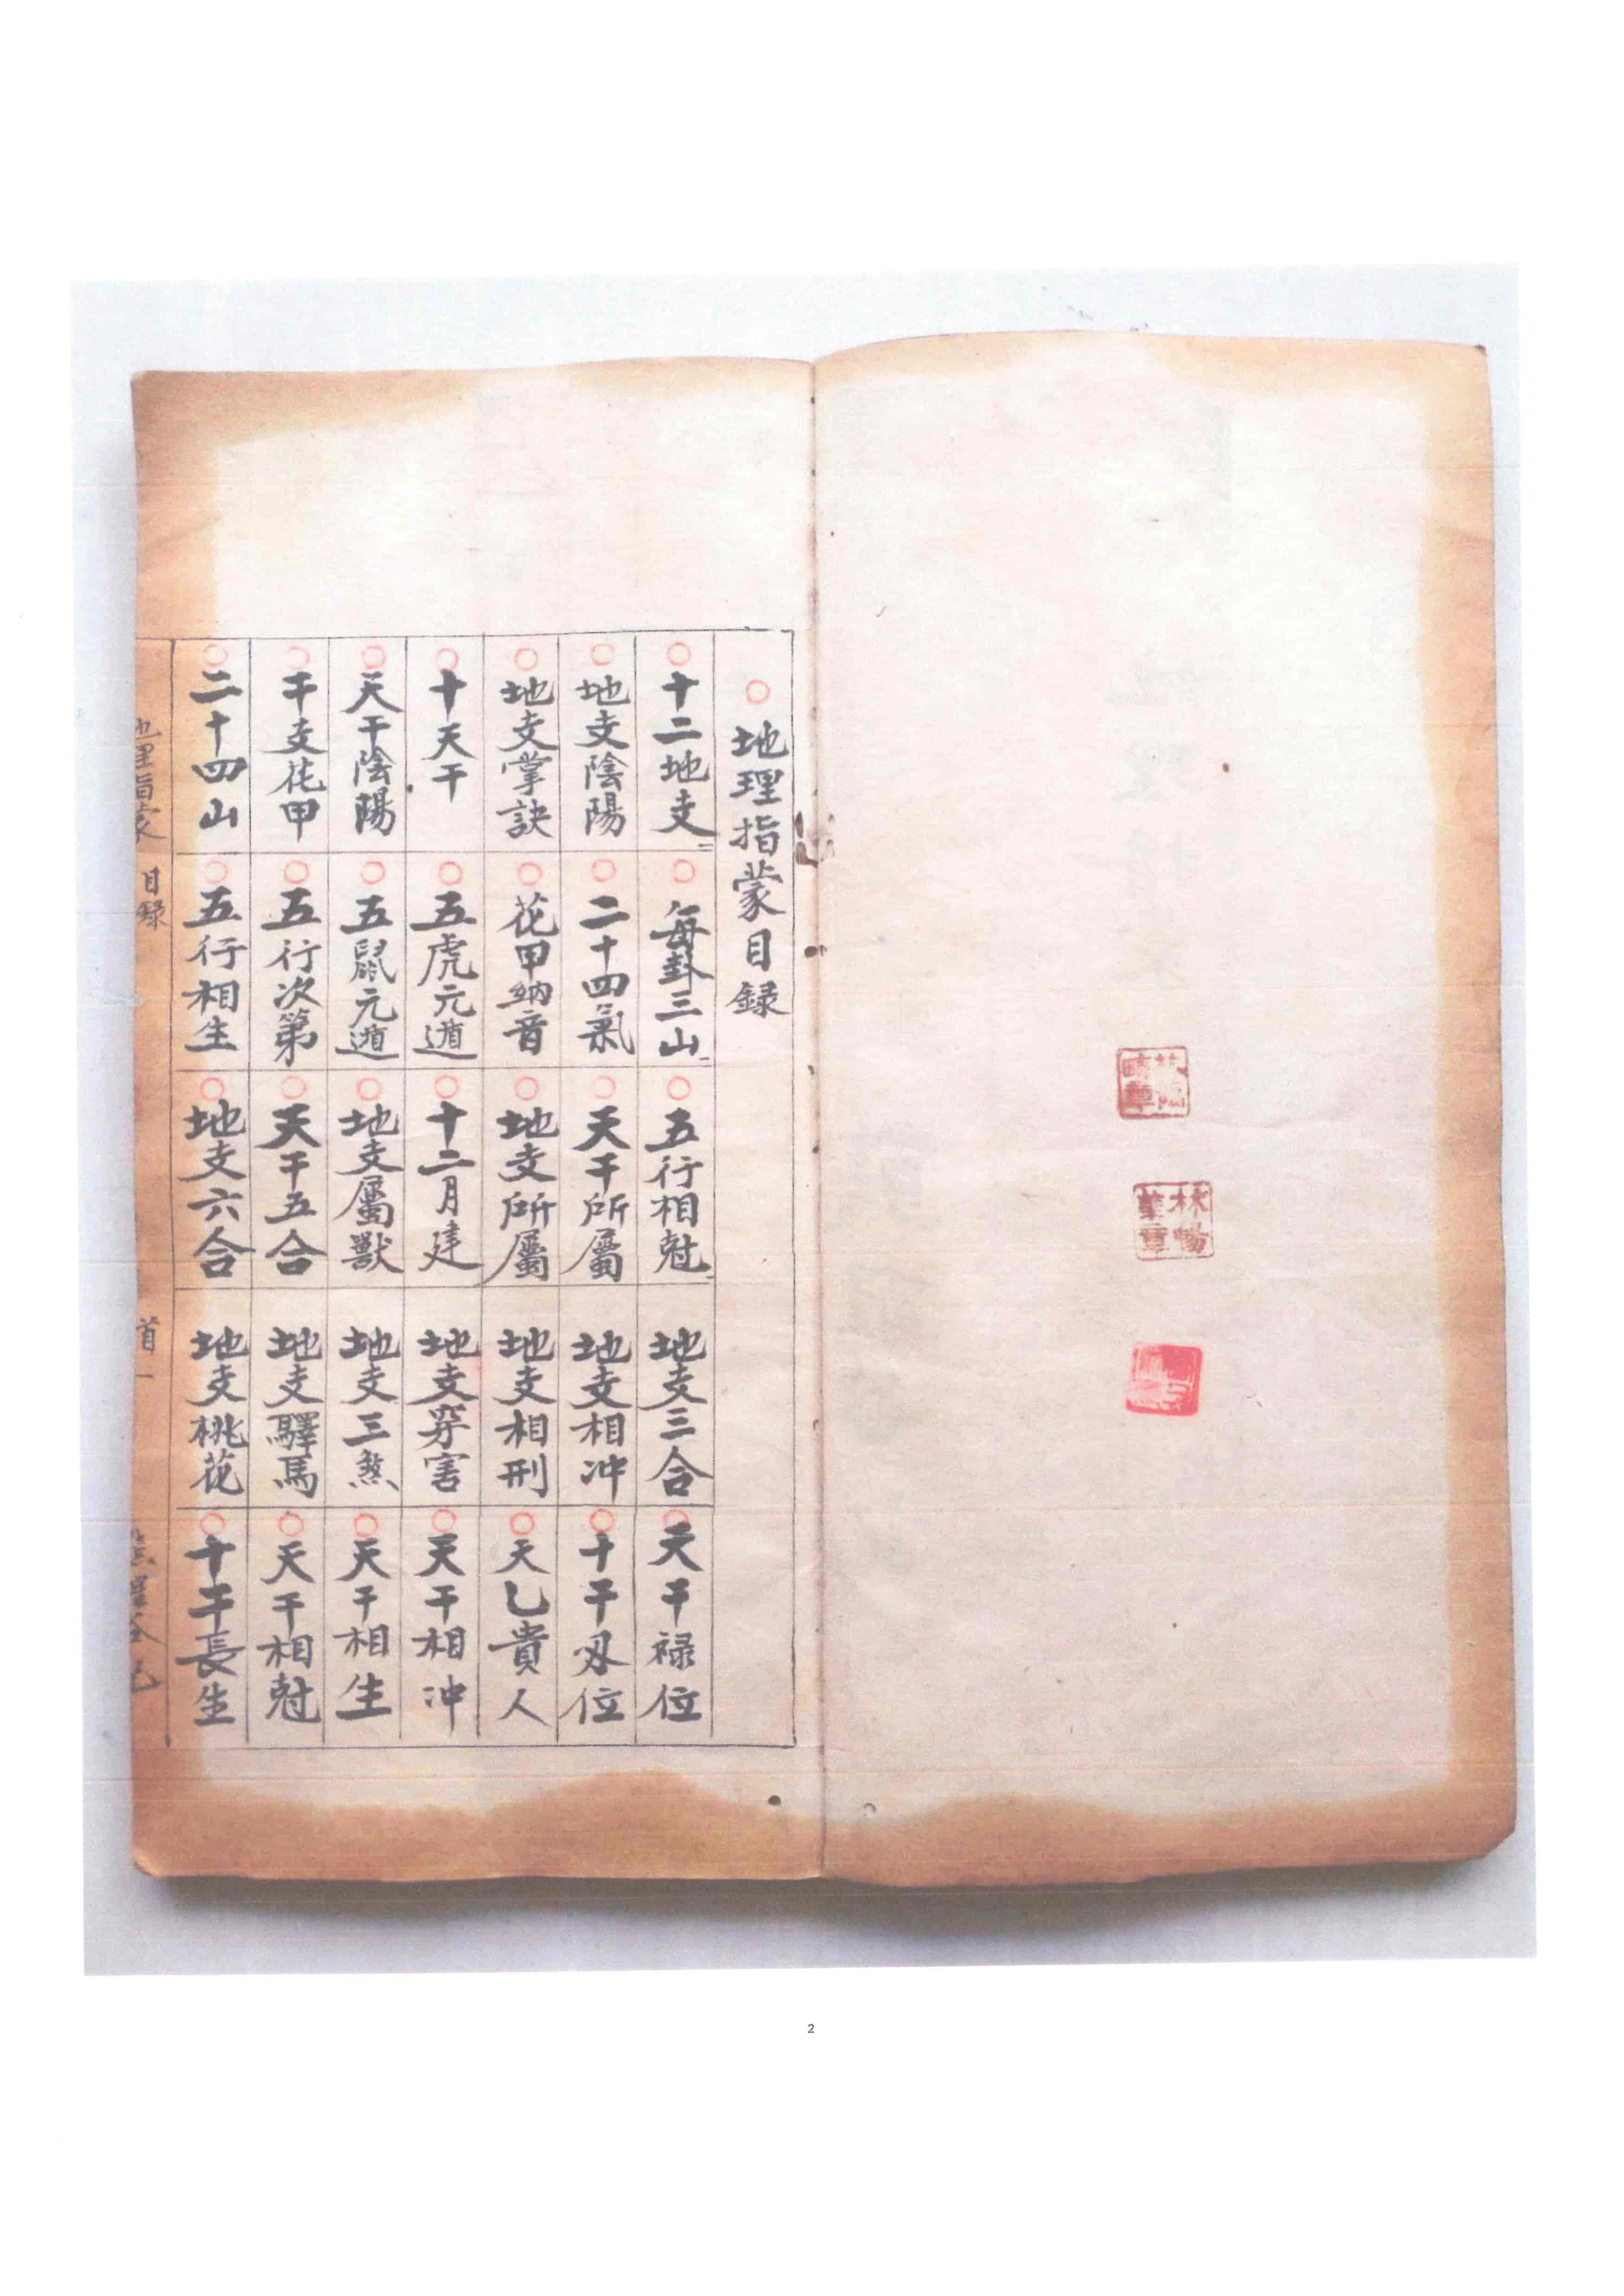 林暢
華章
地理指蒙目録
十二地支
地支陰陽
地支掌訣
十天干
天干陰陽
干支花甲
二十四山
每卦三山
二十四氣
花甲納音
五虎元遁
五鼠元遁
五行次第
五行相生
五行相尅
天干所屬
地支所屬
十二月建
地支屬獸
天干五合
地支六合
地支三合
地支相冲
地支相刑
地支穿害
地支三煞
地支驛馬
地支桃花
天干禄位
十干刄位
天乙貴人
天干相冲
天干相生
天干相尅
十干長生
地理指蒙
目録
首一
2